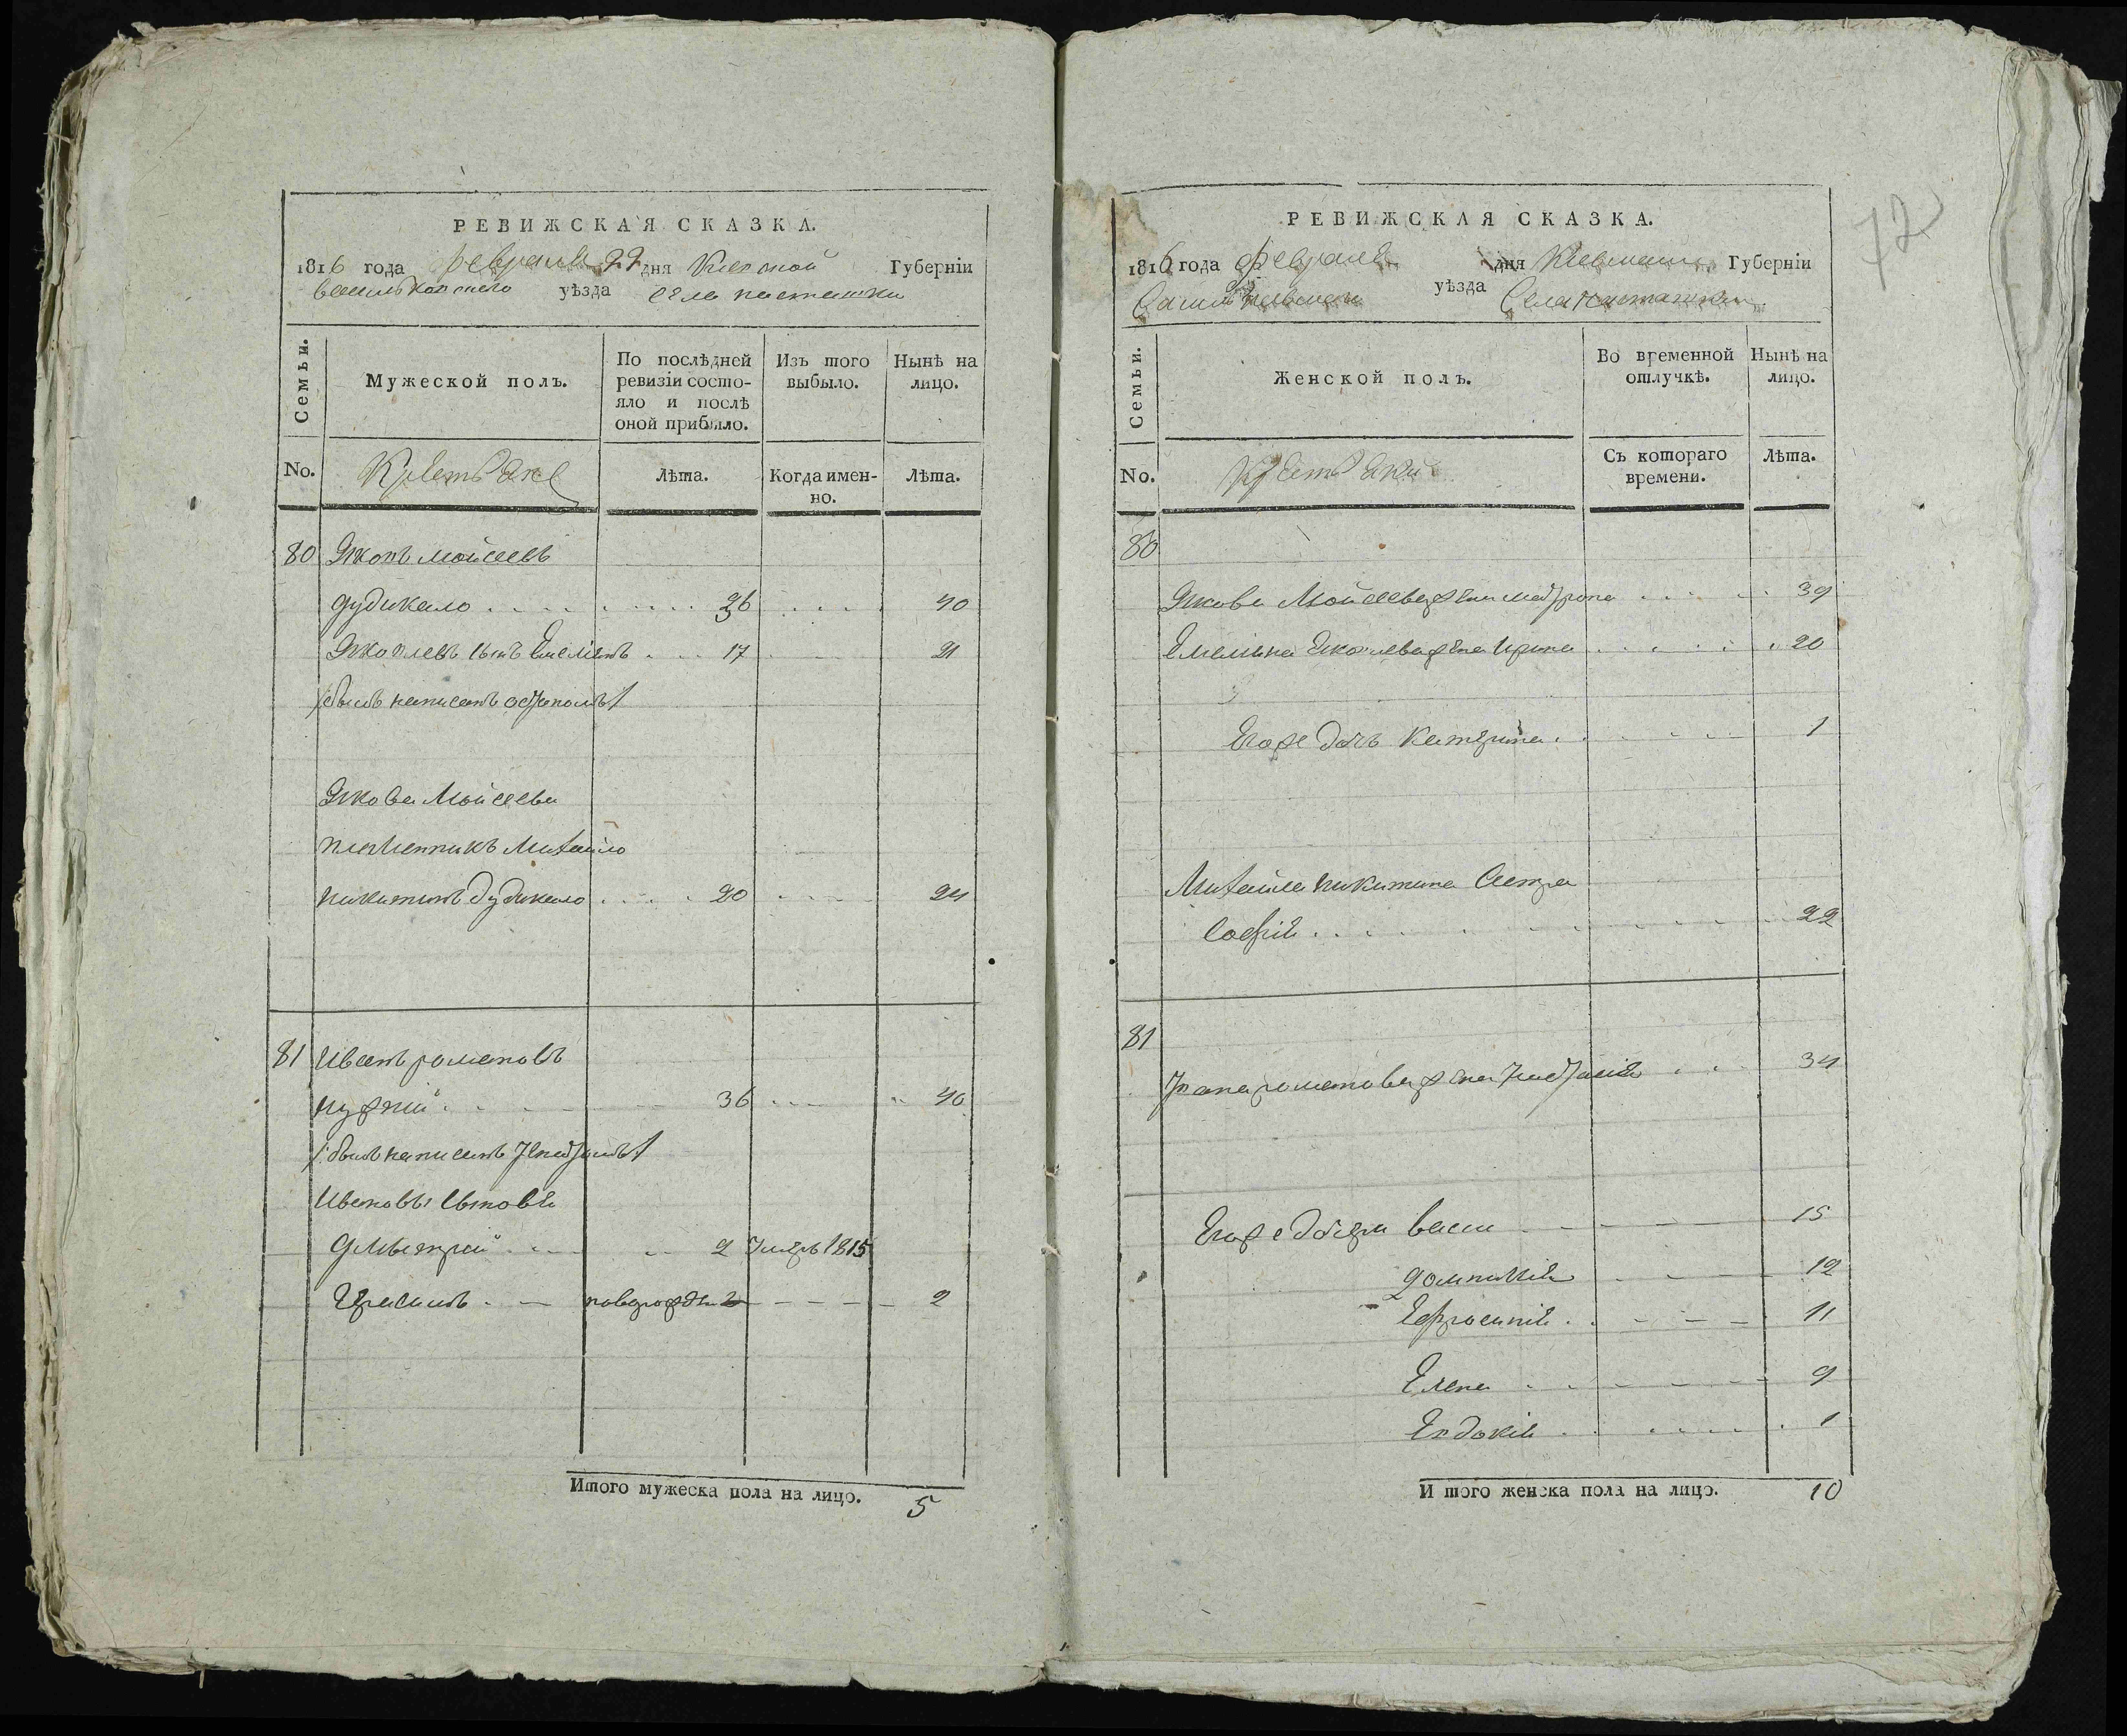 РЕВИЖСКАЯ СКАЗКА.
1816 года февраля 22 дня Киевской Губерніи
васильковского уѣзда села пистинки
Семьи. Мужеской полъ. По послѣдней ревизіи состояло и послѣ оной прибыло. Изъ того выбыло. Нынѣ на лицо.
No. Крестьяне Лѣта. Когда именно. Лѣта.
80 Яковъ мойсеевъ
дудикало 36 40
Яковлевъ сынъ Емелiянъ 17 21
/:былъ написанъ
Якова Мойсеева
племенникъ Михайло
никитинъ дудикало 20 24
81 Иванъ романовъ
36 40
/:былъ написанъ
Ивановы сыновья
Дмитрій 2 умеръ 1815
Герасимъ новорожден 2
Итого мужеска пола на лицо. 5
72
РЕВИЖСКАЯ СКАЗКА.
1816 года февраля дня Киевской Губерніи
уѣзда Села
Семьи. Женской полъ. Во временной отлучкѣ. Нынѣ на лицо.
No. Крестьяне Съ котораго времени. Лѣта.
80
Якова Мойсеева жена матрона 39
Емелiяна Яковлева жена Ирина 20
Его же дочь Катерина 1
Михайла никитина Сестра
Софія 22
81
Ивана романова жена 34
Его же дочери васса 15
Домникія 12
Ефросинія 11
Елена 9
Евдокія 1
И того женска пола на лицо. 10